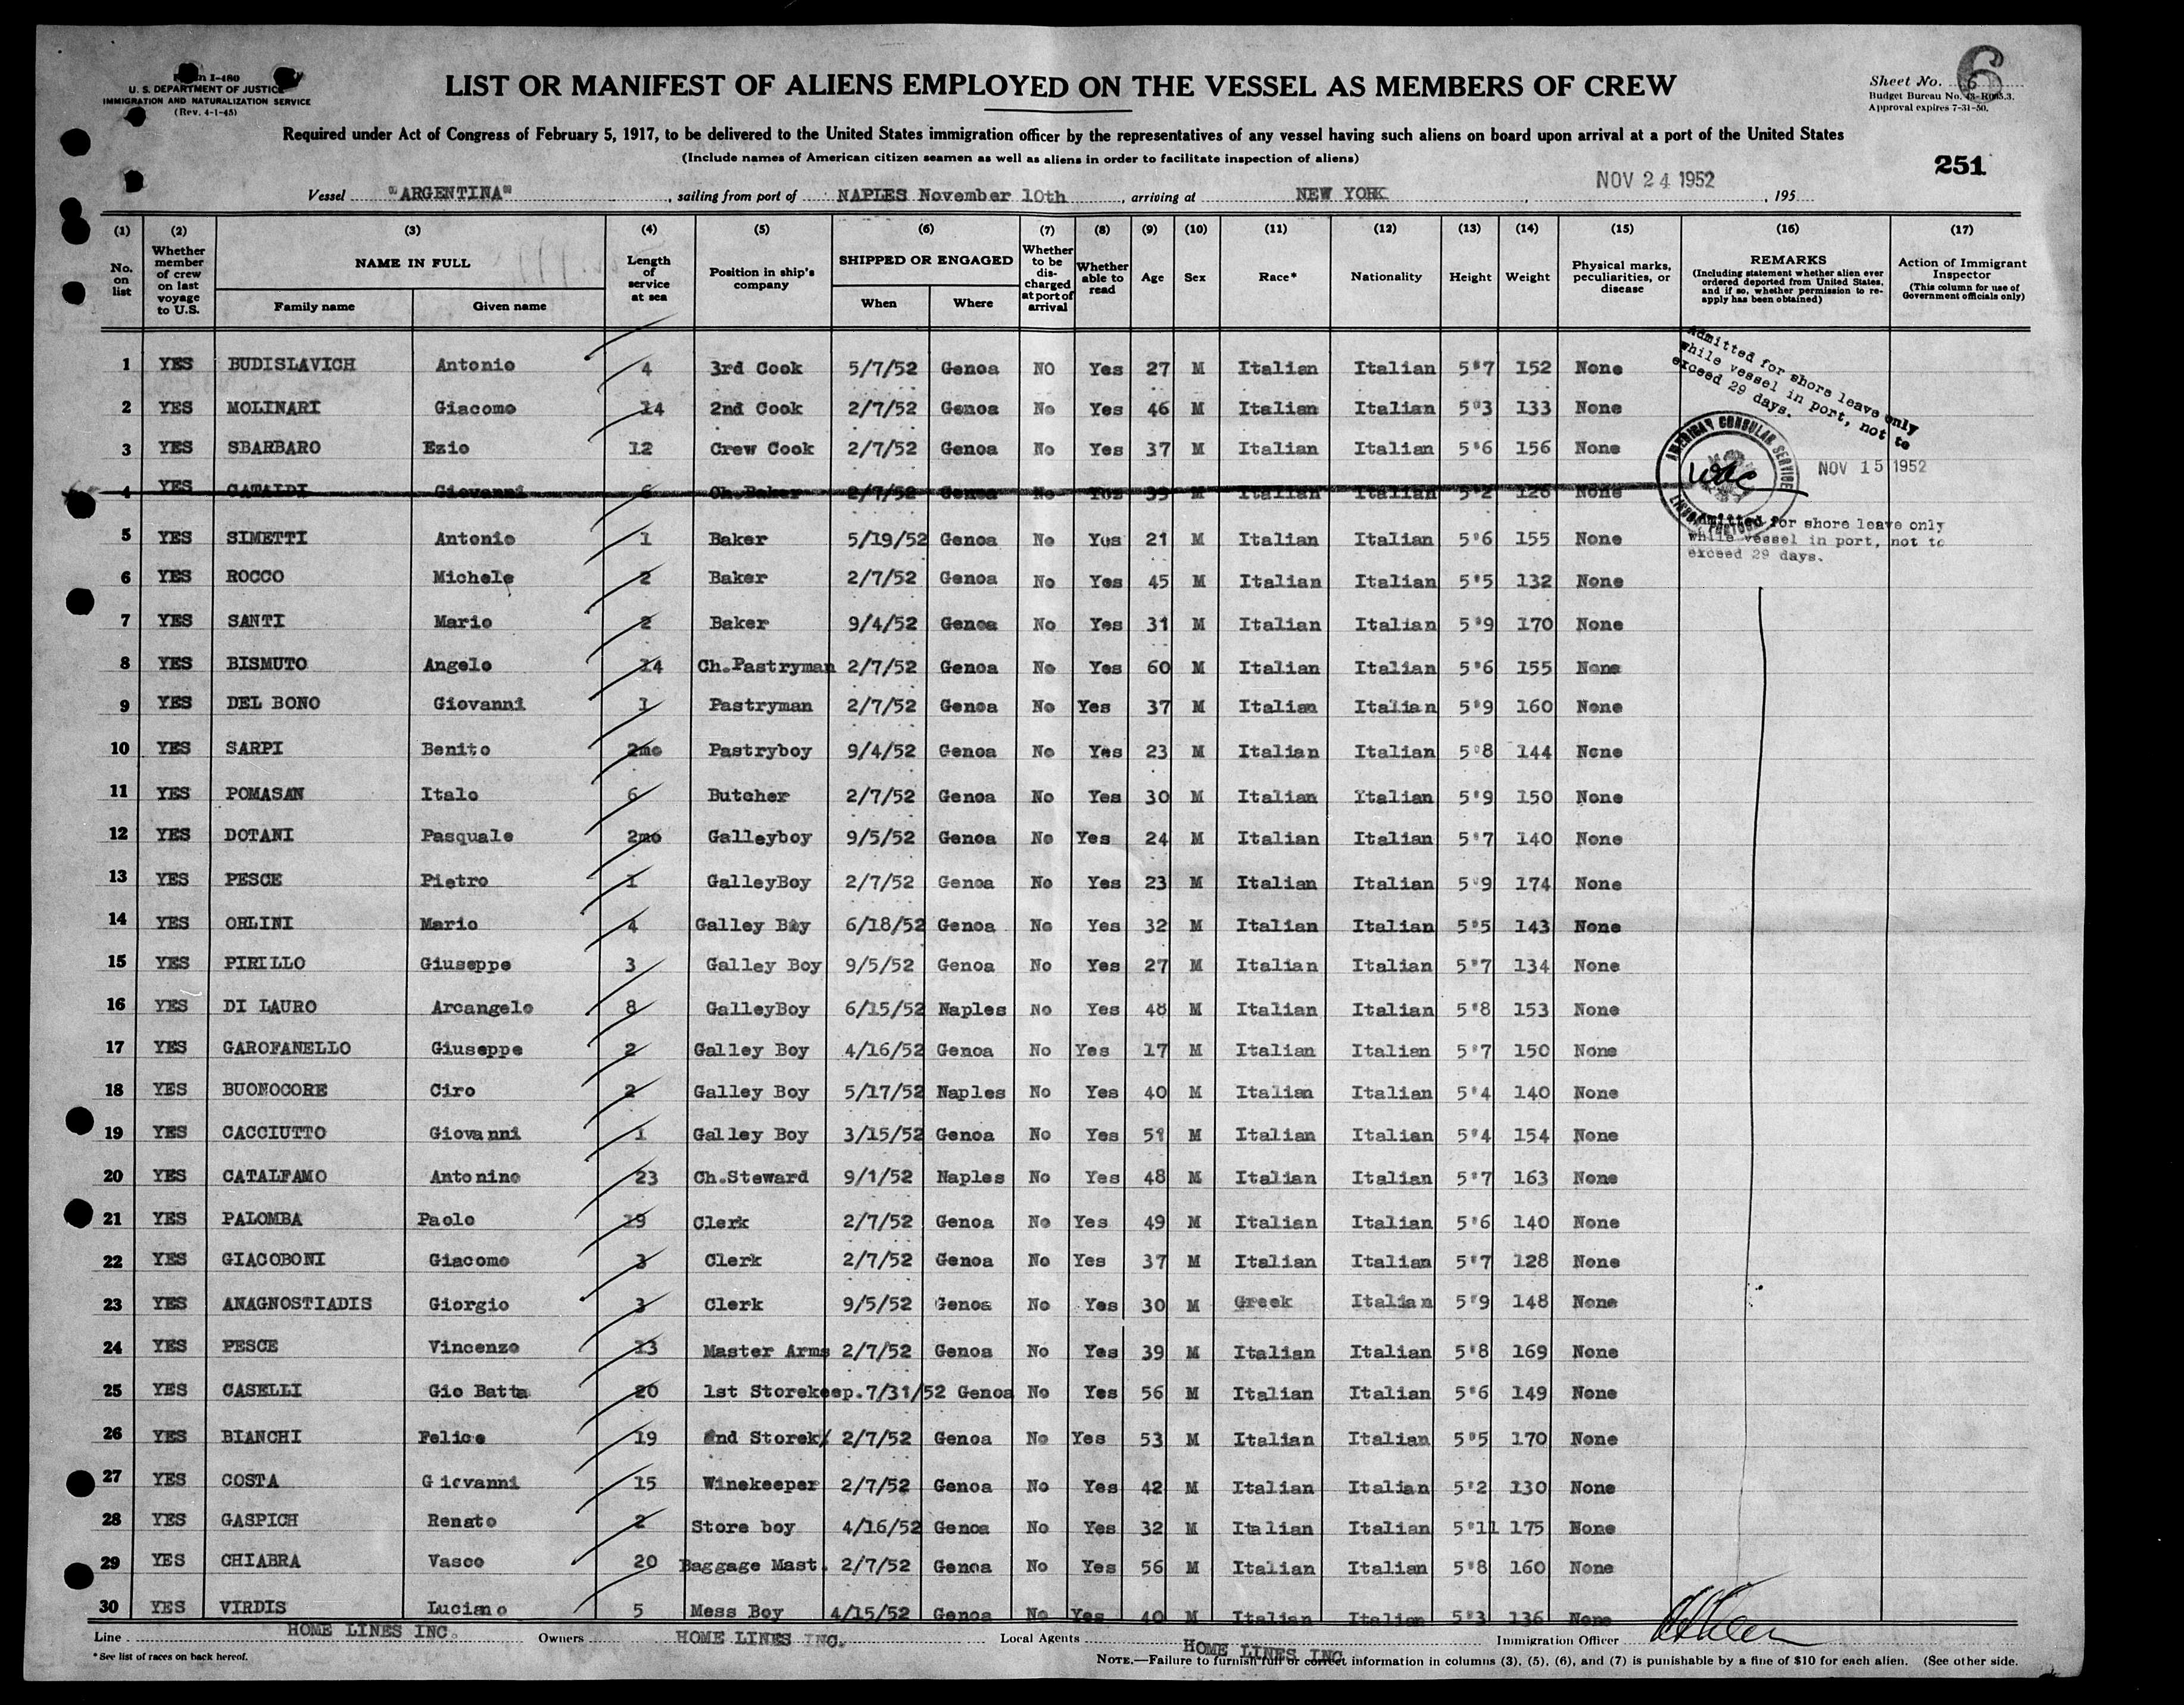 Form I-480
U. S. DEPARTMENT OF JUSTICE
IMMIGRATION AND NATURALIZATION SERVICE
(Rev. 4-1-45)
LIST OR MANIFEST OF ALIENS EMPLOYED ON THE VESSEL AS MEMBERS OF CREW
Sheet No. 6
6
Budget Bureau No. 43-R065.3.
Approval expires 7-31-50.
Required under Act of Congress of February 5, 1917, to be delivered to the United States immigration officer by the representatives of any vessel having such aliens on board upon arrival at a port of the United States
(Include names of American citizen seamen as well as aliens in order to facilitate inspection of aliens)
251
Vessel "ARGENTINA", sailing from port of NAPLES November 10th, arriving at NEW YORK, NOV 24 1952, 195
(1) (2) (3) (4) (5) (6) (7) (8) (9) (10) (11) (12) (13) (14) (15) (16) (17)
No. on list
Whether member of crew on last voyage to U.S.
NAME IN FULL
Family name
Given name
Length of service at sea
Position in ship's company
SHIPPED OR ENGAGED
When
Where
Whether to be discharged at port of arrival
Whether able to read
Age
Sex
Race*
Nationality
Height
Weight
Physical marks, peculiarities, or disease
REMARKS
(Including statement whether alien ever ordered deported from United States, and if so, whether permission to re-apply has been obtained)
Action of Immigrant Inspector
(This column for use of Government officials only)
1 YES BUDISLAVICH Antonio 4 3rd Cook 5/7/52 Genoa NO Yes 27 M Italian Italian 5'7 152 None
2 YES MOLINARI Giacomo 14 2nd Cook 2/7/52 Genoa No Yes 46 M Italian Italian 5'3 133 None
3 YES SBARBARO Ezio 12 Crew Cook 2/7/52 Genoa No Yes 37 M Italian Italian 5'6 156 None
4 YES CATALDI Giovanni 6 Ch.Baker 2/7/52 Genoa No Yes 39 M Italian Italian 5'2 126 None
5 YES SIMETTI Antonio 1 Baker 5/19/52 Genoa No Yes 21 M Italian Italian 5'6 155 None
6 YES ROCCO Michele 2 Baker 2/7/52 Genoa No Yes 45 M Italian Italian 5'5 132 None
7 YES SANTI Mario 2 Baker 9/4/52 Genoa No Yes 31 M Italian Italian 5'9 170 None
8 YES BISMUTO Angelo 14 Ch.Pastryman 2/7/52 Genoa No Yes 60 M Italian Italian 5'6 155 None
9 YES DEL BONO Giovanni 1 Pastryman 2/7/52 Genoa No Yes 37 M Italian Italian 5'9 160 None
10 YES SARPI Benito 2mo Pastryboy 9/4/52 Genoa No Yes 23 M Italian Italian 5'8 144 None
11 YES POMASAN Italo 6 Butcher 2/7/52 Genoa No Yes 30 M Italian Italian 5'9 150 None
12 YES DOTANI Pasquale 2mo Galleyboy 9/5/52 Genoa No Yes 24 M Italian Italian 5'7 140 None
13 YES PESCE Pietro 1 GalleyBoy 2/7/52 Genoa No Yes 23 M Italian Italian 5'9 174 None
14 YES ORLINI Mario 4 Galley Boy 6/18/52 Genoa No Yes 32 M Italian Italian 5'5 143 None
15 YES PIRILLO Giuseppe 3 Galley Boy 9/5/52 Genoa No Yes 27 M Italian Italian 5'7 134 None
16 YES DI LAURO Arcangelo 8 GalleyBoy 6/15/52 Naples No Yes 48 M Italian Italian 5'8 153 None
17 YES GAROFANELLO Giuseppe 2 Galley Boy 4/16/52 Genoa No Yes 17 M Italian Italian 5'7 150 None
18 YES BUONOCORE Ciro 2 Galley Boy 5/17/52 Naples No Yes 40 M Italian Italian 5'4 140 None
19 YES CACCIUTTO Giovanni 1 Galley Boy 3/15/52 Genoa No Yes 51 M Italian Italian 5'4 154 None
20 YES CATALFAMO Antonino 23 Ch.Steward 9/1/52 Naples No Yes 48 M Italian Italian 5'7 163 None
21 YES PALOMBA Paolo 19 Clerk 2/7/52 Genoa No Yes 49 M Italian Italian 5'6 140 None
22 YES GIACOBONI Giacomo 3 Clerk 2/7/52 Genoa No Yes 37 M Italian Italian 5'7 128 None
23 YES ANAGNOSTIADIS Giorgio 3 Clerk 9/5/52 Genoa No Yes 30 M Greek Italian 5'9 148 None
24 YES PESCE Vincenzo 13 Master Arms 2/7/52 Genoa No Yes 39 M Italian Italian 5'8 169 None
25 YES CASELLI Gio Batta 20 1st Storekeep. 7/31/52 Genoa No Yes 56 M Italian Italian 5'6 149 None
26 YES BIANCHI Felice 19 2nd Storek/ 2/7/52 Genoa No Yes 53 M Italian Italian 5'5 170 None
27 YES COSTA Giovanni 15 Winekeeper 2/7/52 Genoa No Yes 42 M Italian Italian 5'2 130 None
28 YES GASPICH Renato 2 Store boy 4/16/52 Genoa No Yes 32 M Italian Italian 5'11 175 None
29 YES CHIABRA Vasco 20 Baggage Mast. 2/7/52 Genoa No Yes 56 M Italian Italian 5'8 160 None
30 YES VIRDIS Luciano 5 Mess Boy 4/15/52 Genoa No Yes 40 M Italian Italian 5'3 136 None
Admitted for shore leave only
while vessel in port, not to
exceed 29 days.
AMERICAN CONSULAR SERVICE
NOV 15 1952
Admitted for shore leave only
while vessel in port, not to
exceed 29 days.
Line HOME LINES INC. Owners HOME LINES INC. Local Agents HOME LINES INC Immigration Officer
*See list of races on back hereof.
NOTE.—Failure to furnish full or correct information in columns (3), (5), (6), and (7) is punishable by a fine of $10 for each alien. (See other side.